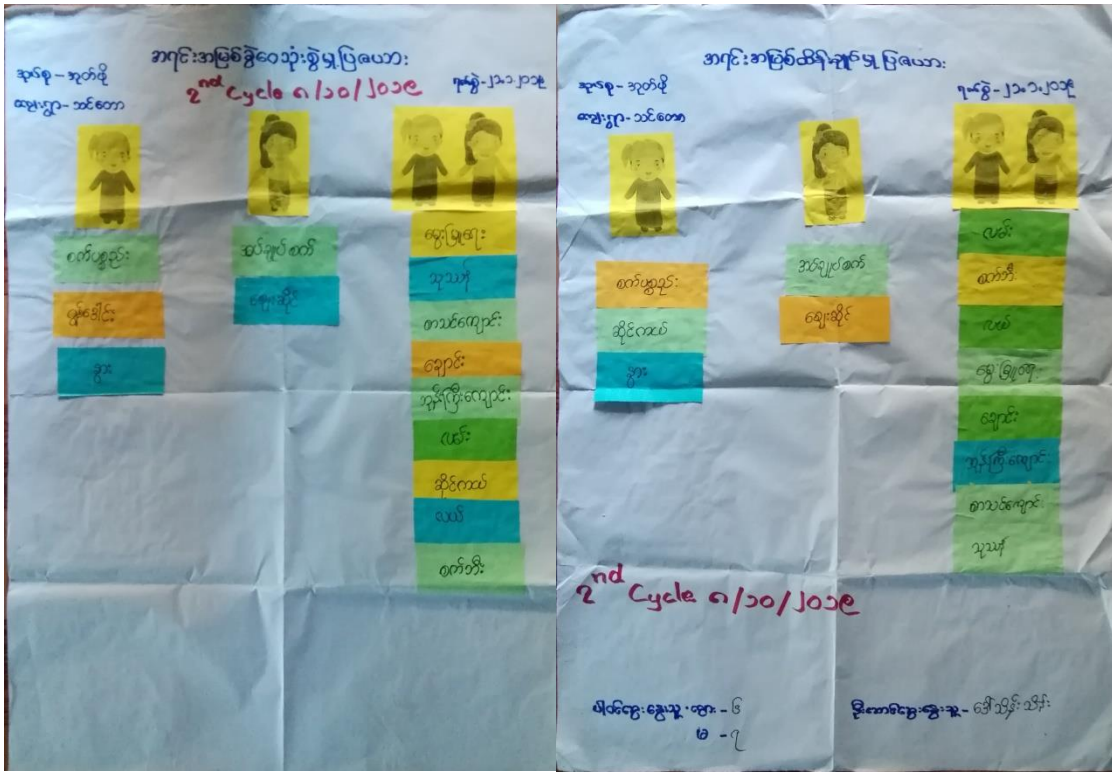 အရင်းအမြစ်ခွဲဝေသုံးစွဲမှုပြဇယား
အုပ်စု - အုတ်ဖို
2nd Cycle ၈/၁၀/၂၀၁၉
ရက်စွဲ - ၂၁.၁.၂၀၁၉
ကျေးရွာ - သင်တော
စက်ပစ္စည်း
နွား
အပ်ချုပ်စက်
ဈေးဆိုင်
မွေးမြူရေး
သုဿန်
စာသင်ကျောင်း
ချောင်း
ဘုန်းကြီးကျောင်း
လမ်း
ဆိုင်ကယ်
လယ်
စက်ဘီး
အရင်းအမြစ်ထိန်းချုပ်မှုပြဇယား
အုပ်စု - အုတ်ဖို
ရက်စွဲ - ၂၁.၁.၂၀၁၉
ကျေးရွာ - သင်တော
စက်ပစ္စည်း
ဆိုင်ကယ်
နွား
အပ်ချုပ်စက်
ဈေးဆိုင်
လမ်း
စက်ဘီး
လယ်
မွေးမြူရေး
ချောင်း
ဘုန်းကြီးကျောင်း
စာသင်ကျောင်း
သုဿန်
2nd Cycle ၈/၁၀/၂၀၁၉
ပါဝင်ဆွေးနွေးသူ ကျား - ၆
မ - ၇
ဦးဆောင်ဆွေးနွေးသူ - ဒေါ်သိန်းသိန်း